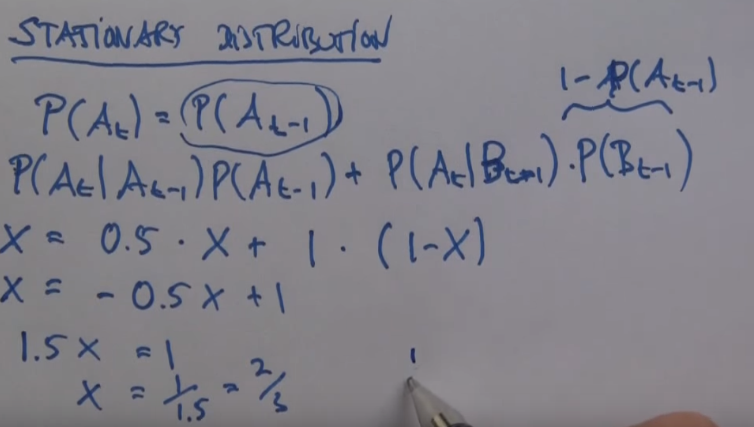 STATIONARY DISTRIBUTION
1-P(At-1)
P(At) = P(At-1)
P(At|At-1)P(At-1) + P(At|Bt-1).P(Bt-1)
X = 0.5 · X + 1 · (1-X)
X = -0.5X + 1
1.5X = 1
X = 1/1.5 = 2/3